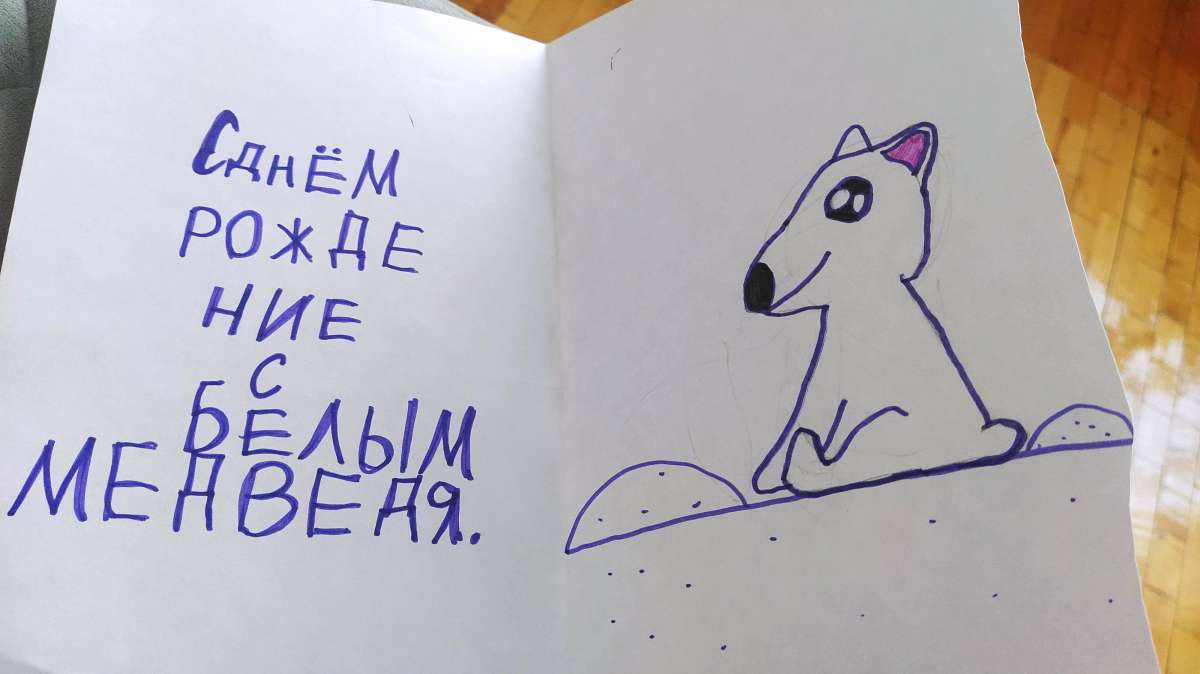 С ДНЁМ
РОЖДЕ
НИЕ
С
БЕЛЫМ
МЕДВЕДЯ.